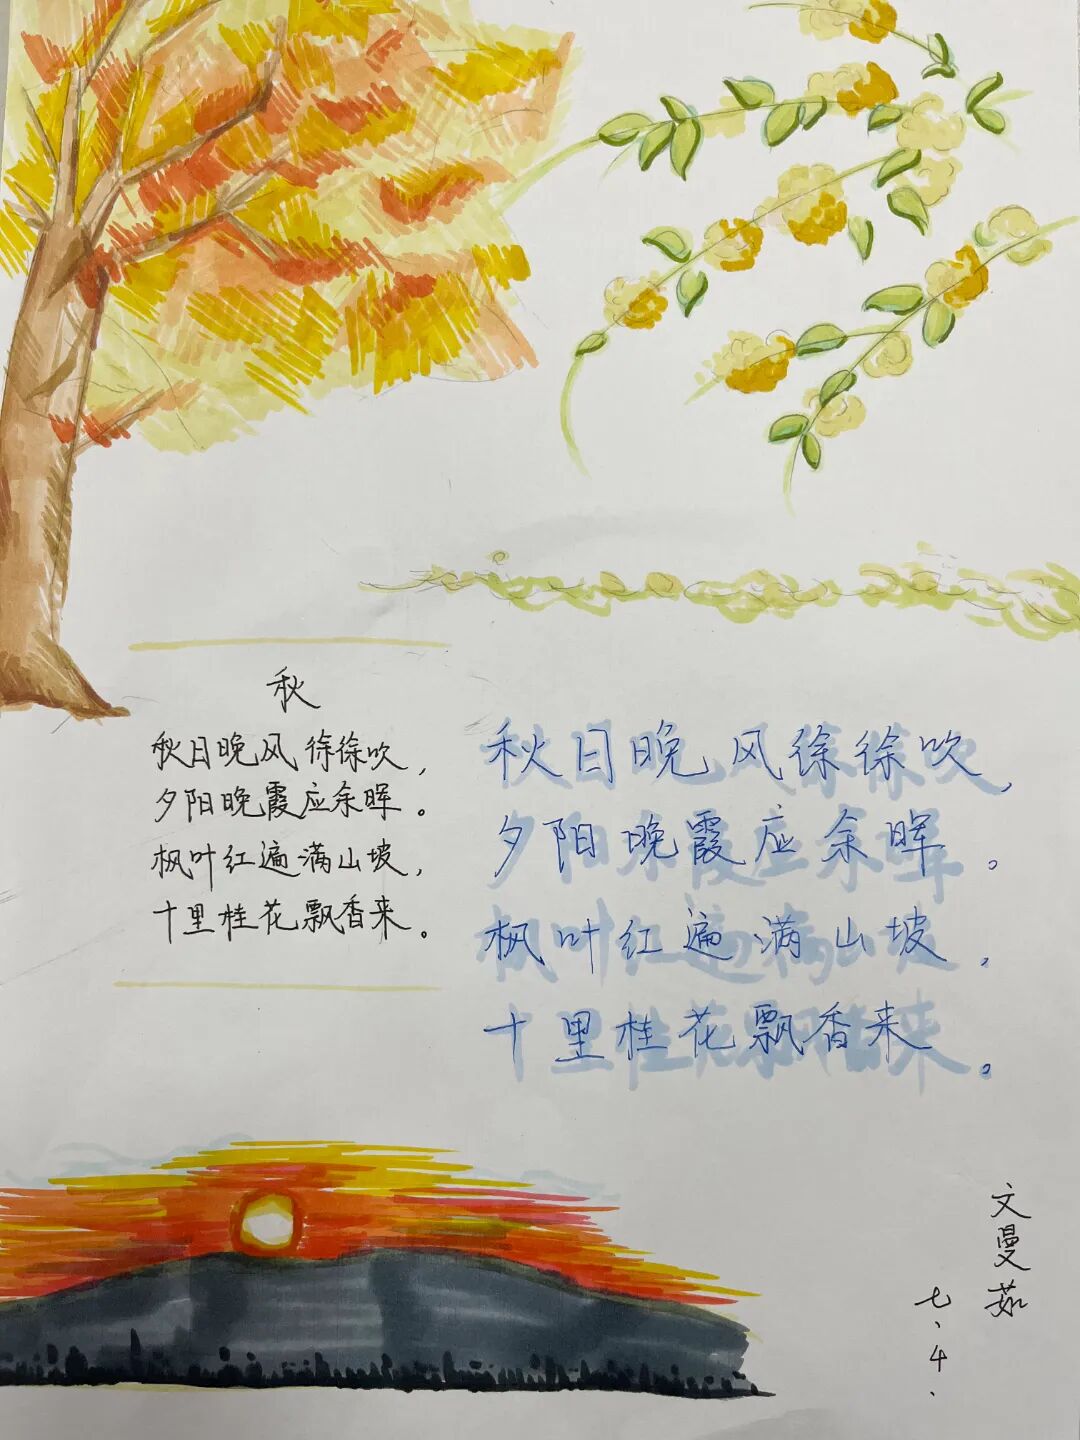 秋
秋日晚风徐徐吹，
夕阳晚霞应余晖。
枫叶红遍满山坡，
十里桂花飘香来。
秋日晚风徐徐吹，
夕阳晚霞应余晖。
枫叶红遍满山坡，
十里桂花飘香来。
文曼茹
七、4、